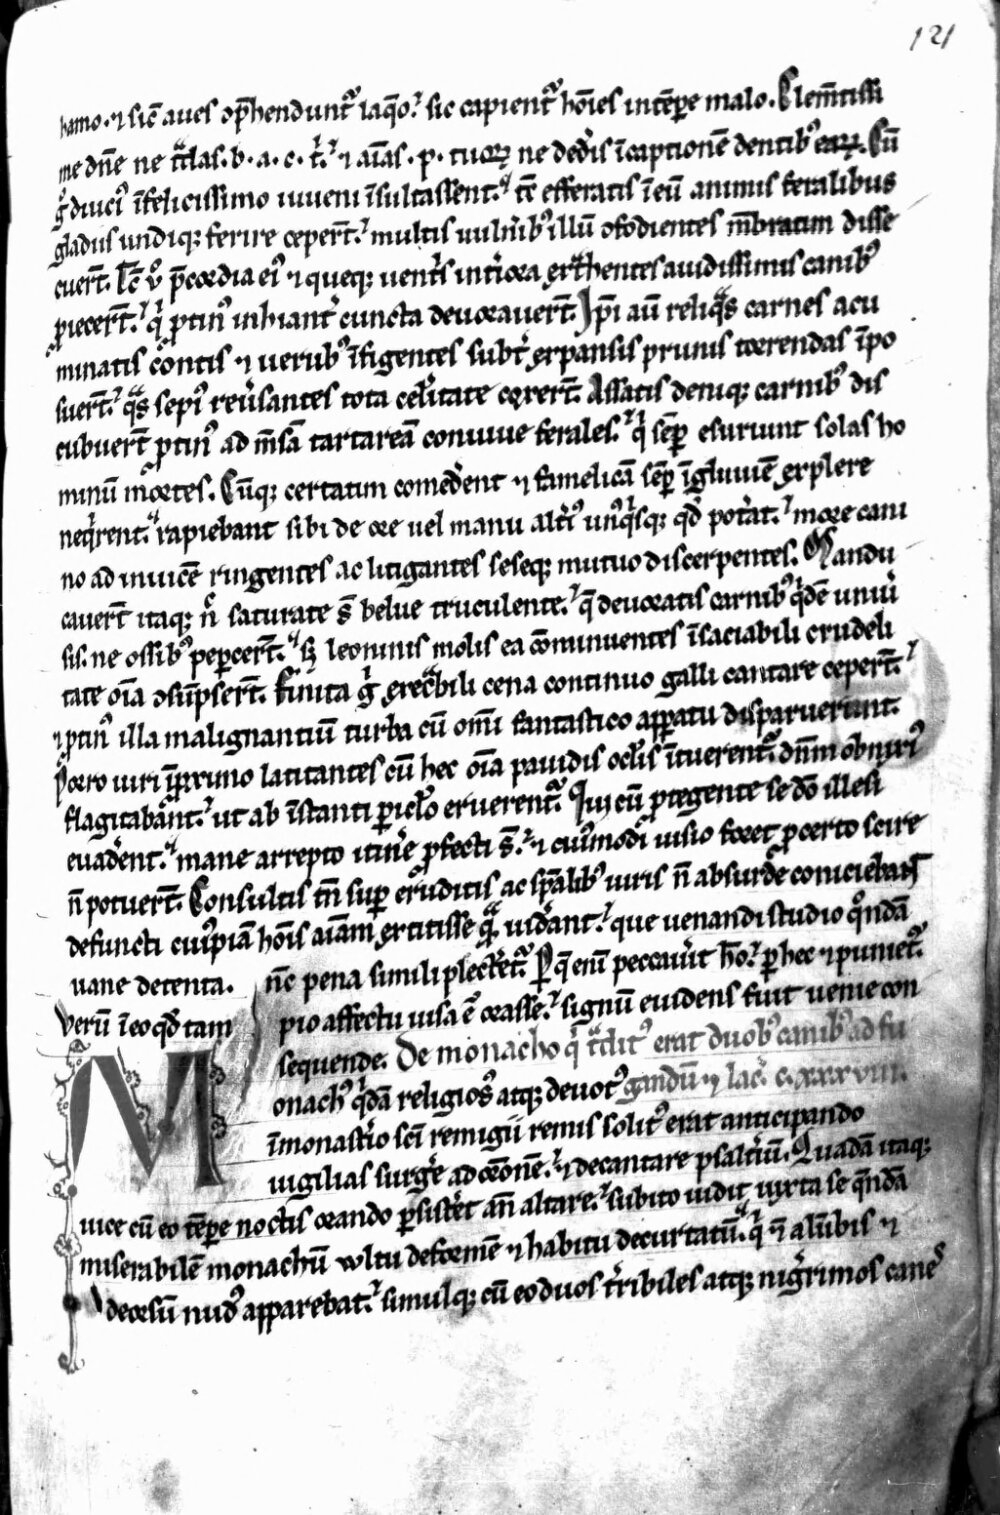 121
hamo. ⁊ sic̄ aues ꝯp̄henduntᷣ laq̄o.ᷣ sic capientᷣ hōies in tēꝑe malo. Clem̄tissi
me dn̄e ne tᷓdas. b. a. c. t.ᷣ ⁊ aīas. p. tuoꝝ ne dedˀis ī captionē dentibꝰ eaꝝ. Cū
gͥ diucꝰ īfelicissimo iuueni īsultassent.ᷣ tē efferatis ī eū animis feralibus
gladiis undiqꝫ ferire cepert̄.ᷣ multis uulnˀibꝰ illū ꝯfodientes mēbratim disse
cuert̄. Hc̄ uͦ p̄cordia eiꝰ ⁊ queqꝫ uentˀis intˀiora exͭhentes auidissimis canibꝰ
ꝓiecert̄.ᷣ qͥ ꝓtinꝰ inhiantˀ cuncta deuorauert̄. Ip̄i aū reliqᷓs carnes acu
minatis cōntis ⁊ uerubꝰ īfigentes subtˀ expansis prunis torrendas īpo
suert̄.ᷣ qᷓs sepiꝰ reuˀsantes tota celˀitate coxert̄. Assatis deniqꝫ carnibꝰ dis
cubuert̄ ꝓtinꝰ ad m̄sā tartareā conuiue ferales.ᷣ qͥ sēꝑ esuriunt solas ho
minū mͦrtes. Cūqꝫ certatim comedˀent ⁊ famelicā sēꝑ īgluuiē explere
neqͥrent.ᷣ rapiebant sibi de ore uel manu altˀiꝰ unꝰqͥsqꝫ qd̓ potˀat.ᷣ more cani
no ad inuicē ringentes ac litigantes seseqꝫ mutuo discerpentes. Mandu
cauert̄ itaqꝫ n̄ saturate s̄ belue truculente.ᷣ q̄ deuoratis carnibꝰ qͥdē uniuˀ
sis. ne ossibꝰ peꝑcert̄.ᷣ sꝫ leoninis molis ea cōminuentes īsaciabili crudeli
tate oīa ꝯsūpsert̄. Finita gͥ execᷓbili cena continuo galli cantare ceperт̄.ᷣ
⁊ ꝓtinꝰ illa malignantiū turba cū omī fantastico apparatu disparuerunt.
Porro uiri īpͥruino latitantes cū hec oīa pauidis oclˀis ītuerentᷣ. dn̄m obnixiꝰ
flagitabānt.ᷣ ut ab īstanti ꝑiclˀo eruerentᷣ. Qui cū ꝓtegente se dō illesi
euadˀent.ᷣ mane arrepto itinˀe ꝓfecti s̄.ᷣ ⁊ cuiꝰmodi uisio foret ꝓcerto scire
n̄ potuert̄. Consultis tn̄ suꝑ eruditis ac spūalibꝰ uiris n̄ absurde coniciebant
defuncti cuiꝰpiā hōis aīam extitisse qᷓ uidˀant.ᷣ que uenandi studio qͦndā
uane detenta. nc̄ pena simili plectˀetᷣ. Pq̄ enī peccauˀit hō.ᷣ ꝑ hec ⁊ punietᷣ.
Verū īeo qd̓ tam pio affectu uisa ē orasse.ᷣ signū euidens fuit uenie con
sequende. De monacho qͥ tᷓditꝰ erat duobꝰ canibꝰ ad fu
Monachꝰ qͥdā religiosꝰ atqꝫ deuotꝰ gandū ⁊ lac̓. c.xxxviii.
īmonastˀio sc̄i remigii remis solitꝰ erat anticipando
uigilias surgˀe ad orōnē.ᷣ ⁊ decantare psaltˀiū. Quadā itaqꝫ
uice cū eo tēꝑe noctis orando ꝑsistˀet an̄ altare.ᷣ subito uidit iuxta se qͤndā
miserabilē monachū wltu deformē ⁊ habitu decurtatū.ᷣ qͥ ⁊ n̄ alūbis ⁊
deorsū nudꝰ apparebat.ᷣ simulqꝫ cū eo duos tˀribiles atqꝫ nigˀrimos canes